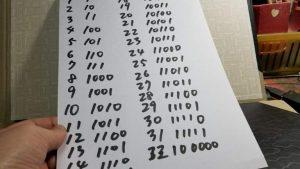 2 10
3 11
4 100
5 101
6 110
7 111
8 1000
9 1001
10 1010
11 1011
12 1100
13 1101
14 1110
19 10011
20 10100
21 10101
22 10110
23 10111
24 11000
25 11001
26 11010
27 11011
28 11100
29 11101
30 11110
31 11111
32 100000